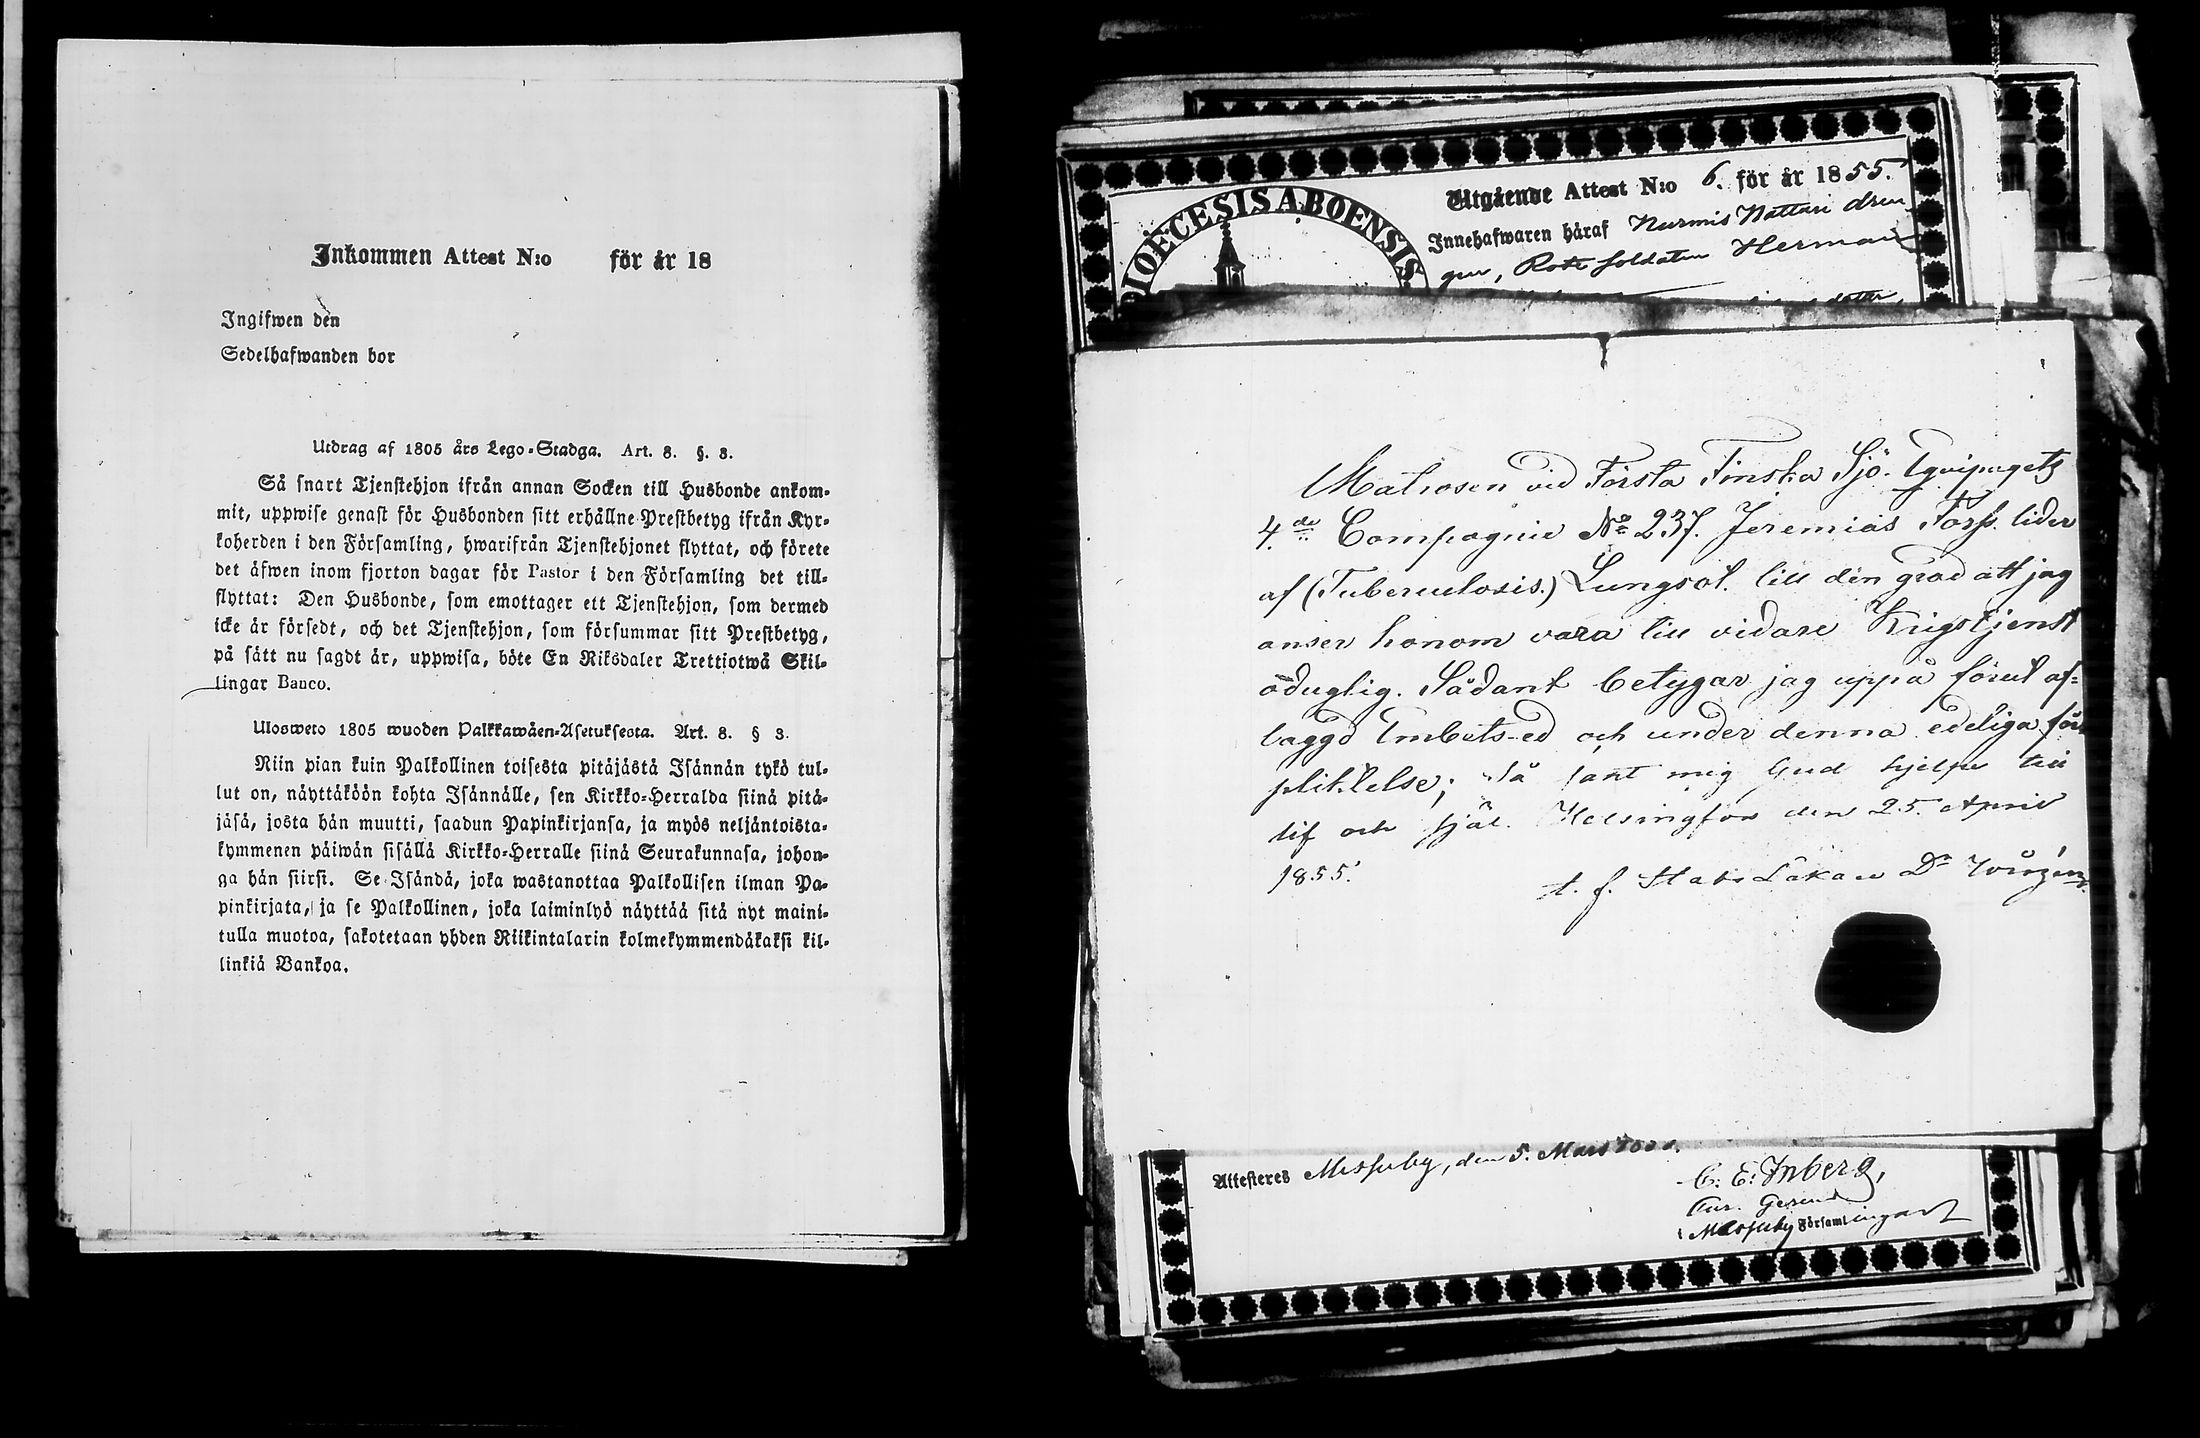 Inkommen Attest N:o för år 18
Ingifwen den
Sedelhafwanden bor
Utdrag af 1805 års Lego-Stadga. Art. 8. §. 3.
Så snart Tjenstehjon ifrån annan Socken till Husbonde ankom-
mit, uppwise genast för Husbonden sitt erhållne Prestbetyg ifrån Kyr-
koherden i den Församling, hwarifrån Tjenstehjonet flyttat, och förete
det äfwen inom fjorton dagar för Pastor i den Församling det till-
flyttat: Den Husbonde, som emottager ett Tjenstehjon, som dermed
icke är försedt, och det Tjenstehjon, som försummar sitt Prestbetyg,
på sätt nu sagdt är, uppwisa, böte En Riksdaler Trettiotwå Skil-
lingar Banco.
Ulosweto 1805 wuoden Palkkawäen-Asetuksesta. Art. 8. § 3.
Niin pian kuin Palkollinen toisesta pitäjästä Isännän tykö tul-
lut on, näyttäköön kohta Isännälle, sen Kirkko-Herralda siinä pitä-
jäsä, josta hän muutti, saadun Papinkirjansa, ja myös neljäntoista-
kymmenen päiwän sisällä Kirkko-Herralle siinä Seurakunnasa, johon-
ga hän siirsi. Se Isändä, joka wastanottaa Palkollisen ilman Pa-
pinkirjata, ja se Palkollinen, joka laiminlyö näyttää sitä nyt maini-
tulla muotoa, sakotetaan yhden Riikintalarin kolmekymmendäkaksi kil-
linkiä Bankoa.
DIOECESIS ABOENSIS
Utgående Attest N:o 6. för år 1855.
Innehafwaren häraf Nurmis Nattari dren
gen, Rote soldaten Herman
dotter,
Matrosen vid Första Finska Sjö-Eqvipagets
4.de Compagnie No 237. Jeremias Forss. lider
af (Tuberculosis.) Lungsot. till den grad att jag
anser honom vara till vidare Krigstjenst
oduglig. Sådant betygar jag uppå förut af=
laggd Embets-ed och under denna edeliga för
pliktelse; Så sant mig Gud hjelpe till
lif och själ. Helsingfors den 25. April
1855.
t. f. Stabs Läkare Dr
Attesteres Messuby, den 5. Mars
C: E: Inberg,
Cur. Gerens
Messuby Församlingar